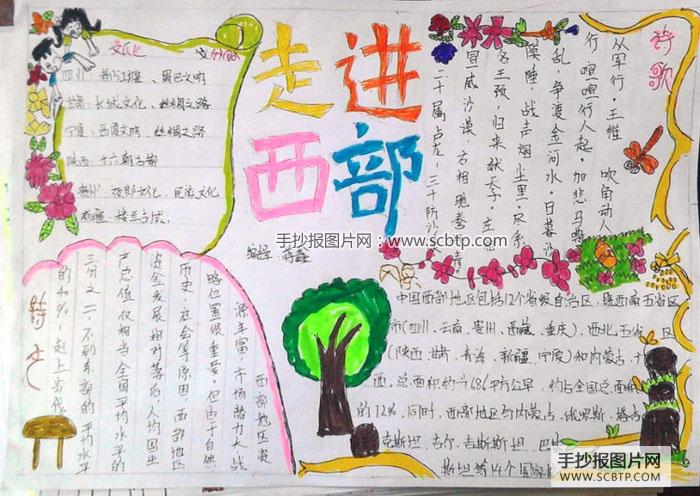 走进
西部
文化
四川：都江堰、蜀巴文明
甘肃：长城文化、丝绸之路
宁夏：西夏文明、丝绸之路
陕西：十六朝古都
贵州：夜郎文化、民族文化
楼兰古城
诗歌
从军行·王维 吹角动人
行，喧喧行人起。加悲马
乱，争渡金河水。日暮沙
漠陲，战声烟尘里。尽系
名王颈，归来献天子。左
冒威沙漠，古相驰
二十属卢龙，三十防沙
手抄报图片网：www.scbtp.com
特点
西部地区
源丰富，市场潜力大，战
略位置很重要。但由于自然、
历史、社会等原因，西部地区
发展相对落后，人均国生
产总值仅相当全国平均水平的
三分之二，不到东部的平均水平
的40%，赶上步伐
中国西部地区包括12个省级自治区，西南五省区
市（四川、云南、贵州、西藏、重庆）、西北五省区
（陕西、甘肃、青海、新疆、宁夏）和内蒙古、
西，总面积约六86平方公里，约占全国总面积
的12%，同时，西部地区与内蒙古、俄罗斯、塔吉
克斯坦、吉尔吉斯斯坦、巴
斯坦等14个国家
手抄报图片网
WWW.SCBTP.COM